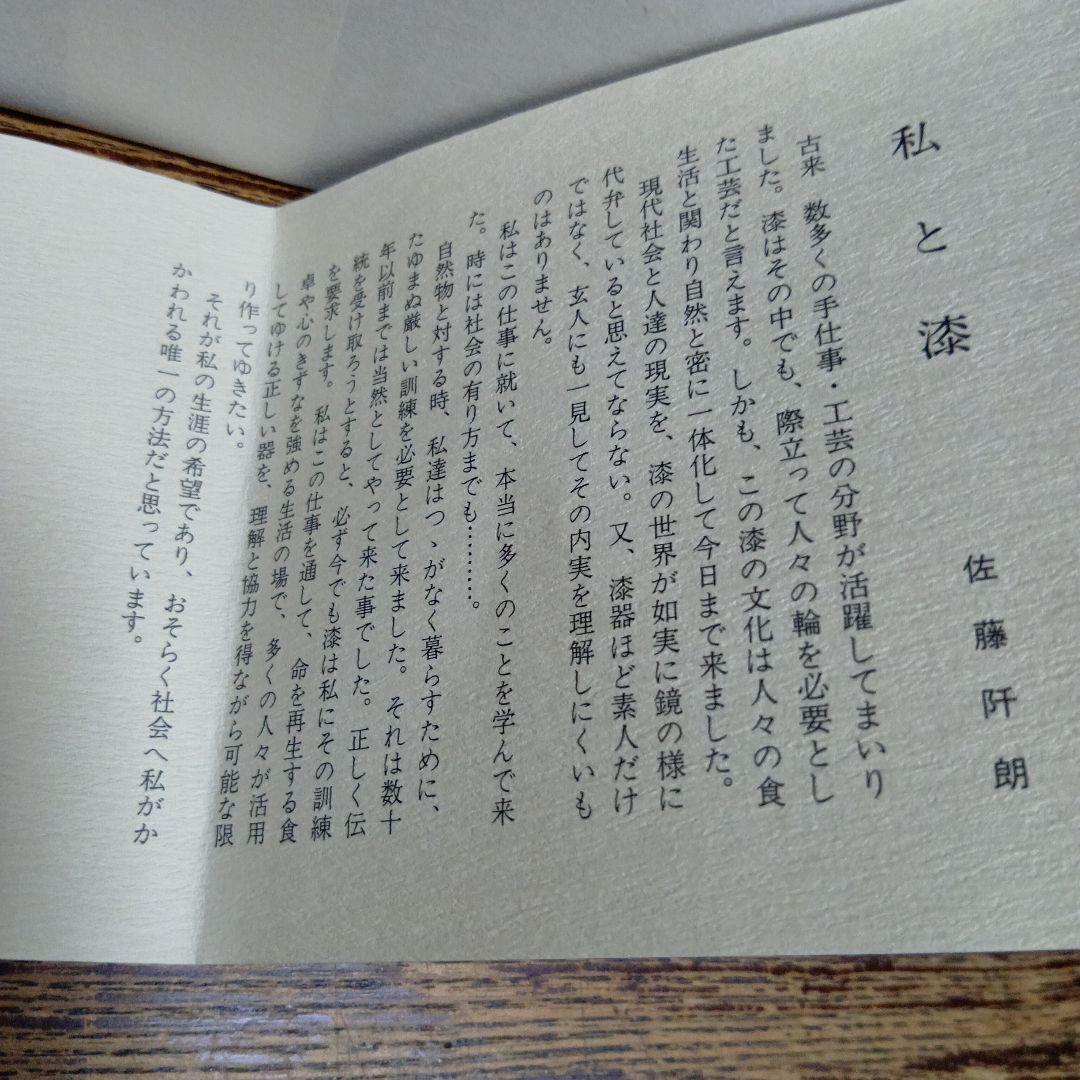 私と漆
佐藤阡朗
古来　数多くの手仕事・工芸の分野が活躍してまいり
ました。漆はその中でも、際立って人々の輪を必要とし
た工芸だと言えます。しかも、この漆の文化は人々の食
生活と関わり自然と密に一体化して今日まで来ました。
現代社会と人達の現実を、漆の世界が如実に鏡の様に
代弁していると思えてならない。又、漆器ほど素人だけ
ではなく、玄人にも一見してその内実を理解しにくいも
のはありません。
私はこの仕事に就いて、本当に多くのことを学んで来
た。時には社会の有り方までも………。
自然物と対する時、私達はつゝがなく暮らすために、
たゆまぬ厳しい訓練を必要として来ました。それは数十
年以前までは当然としてやって来た事でした。正しく伝
統を受け取ろうとすると、必ず今でも漆は私にその訓練
を要求します。私はこの仕事を通して、命を再生する食
卓や心のきずなを強める生活の場で、多くの人々が活用
してゆける正しい器を、理解と協力を得ながら可能な限
り作ってゆきたい。
それが私の生涯の希望であり、おそらく社会へ私がか
かわれる唯一の方法だと思っています。